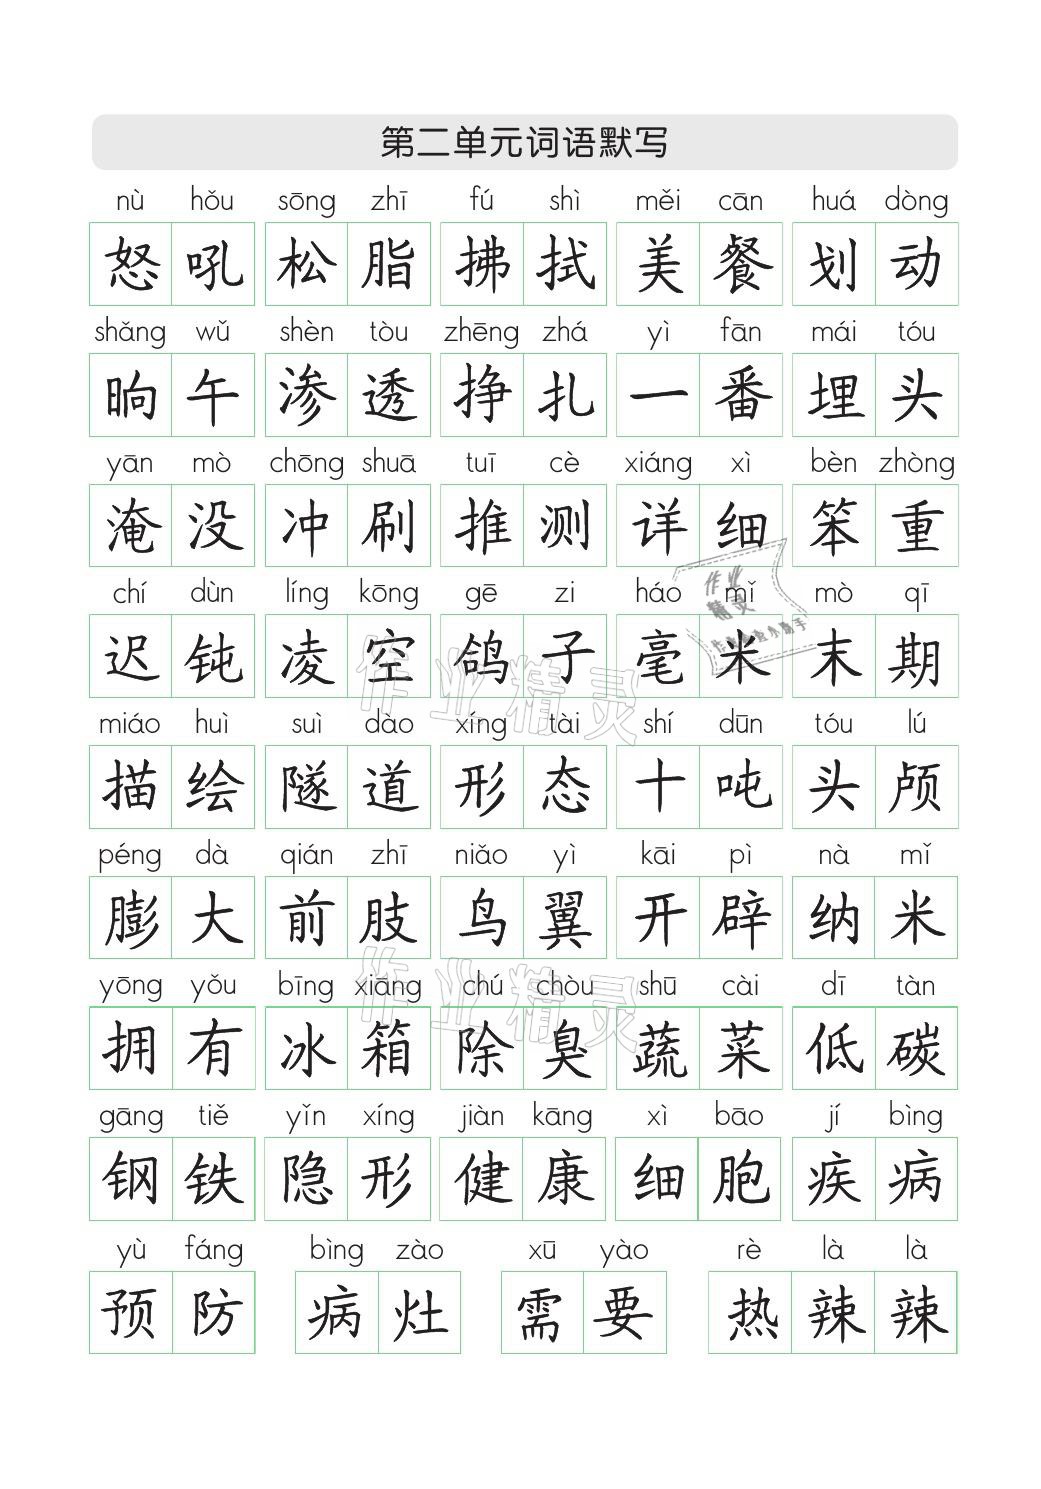 第二单元词语默写
nù hǒu sōng zhī fú shì měi cān huá dòng
怒吼 松脂 拂拭 美餐 划动
shǎng wǔ shèn tòu zhēng zhá yì fān mái tóu
晌午 渗透 挣扎 一番 埋头
yān mò chōng shuā tuī cè xiáng xì bèn zhòng
淹没 冲刷 推测 详细 笨重
chí dùn líng kōng gē zi háo mǐ mò qī
迟钝 凌空 鸽子 毫米 末期
miáo huì suì dào xíng tài shí dūn tóu lú
描绘 隧道 形态 十吨 头颅
péng dà qián zhī niǎo yì kāi pì nà mǐ
膨大 前肢 鸟翼 开辟 纳米
yōng yǒu bīng xiāng chú chòu shū cài dī tàn
拥有 冰箱 除臭 蔬菜 低碳
gāng tiě yǐn xíng jiàn kāng xì bāo jí bìng
钢铁 隐形 健康 细胞 疾病
yù fáng bìng zào xū yào rè là là
预防 病灶 需要 热辣辣
作业精灵
作业精灵
作业精灵